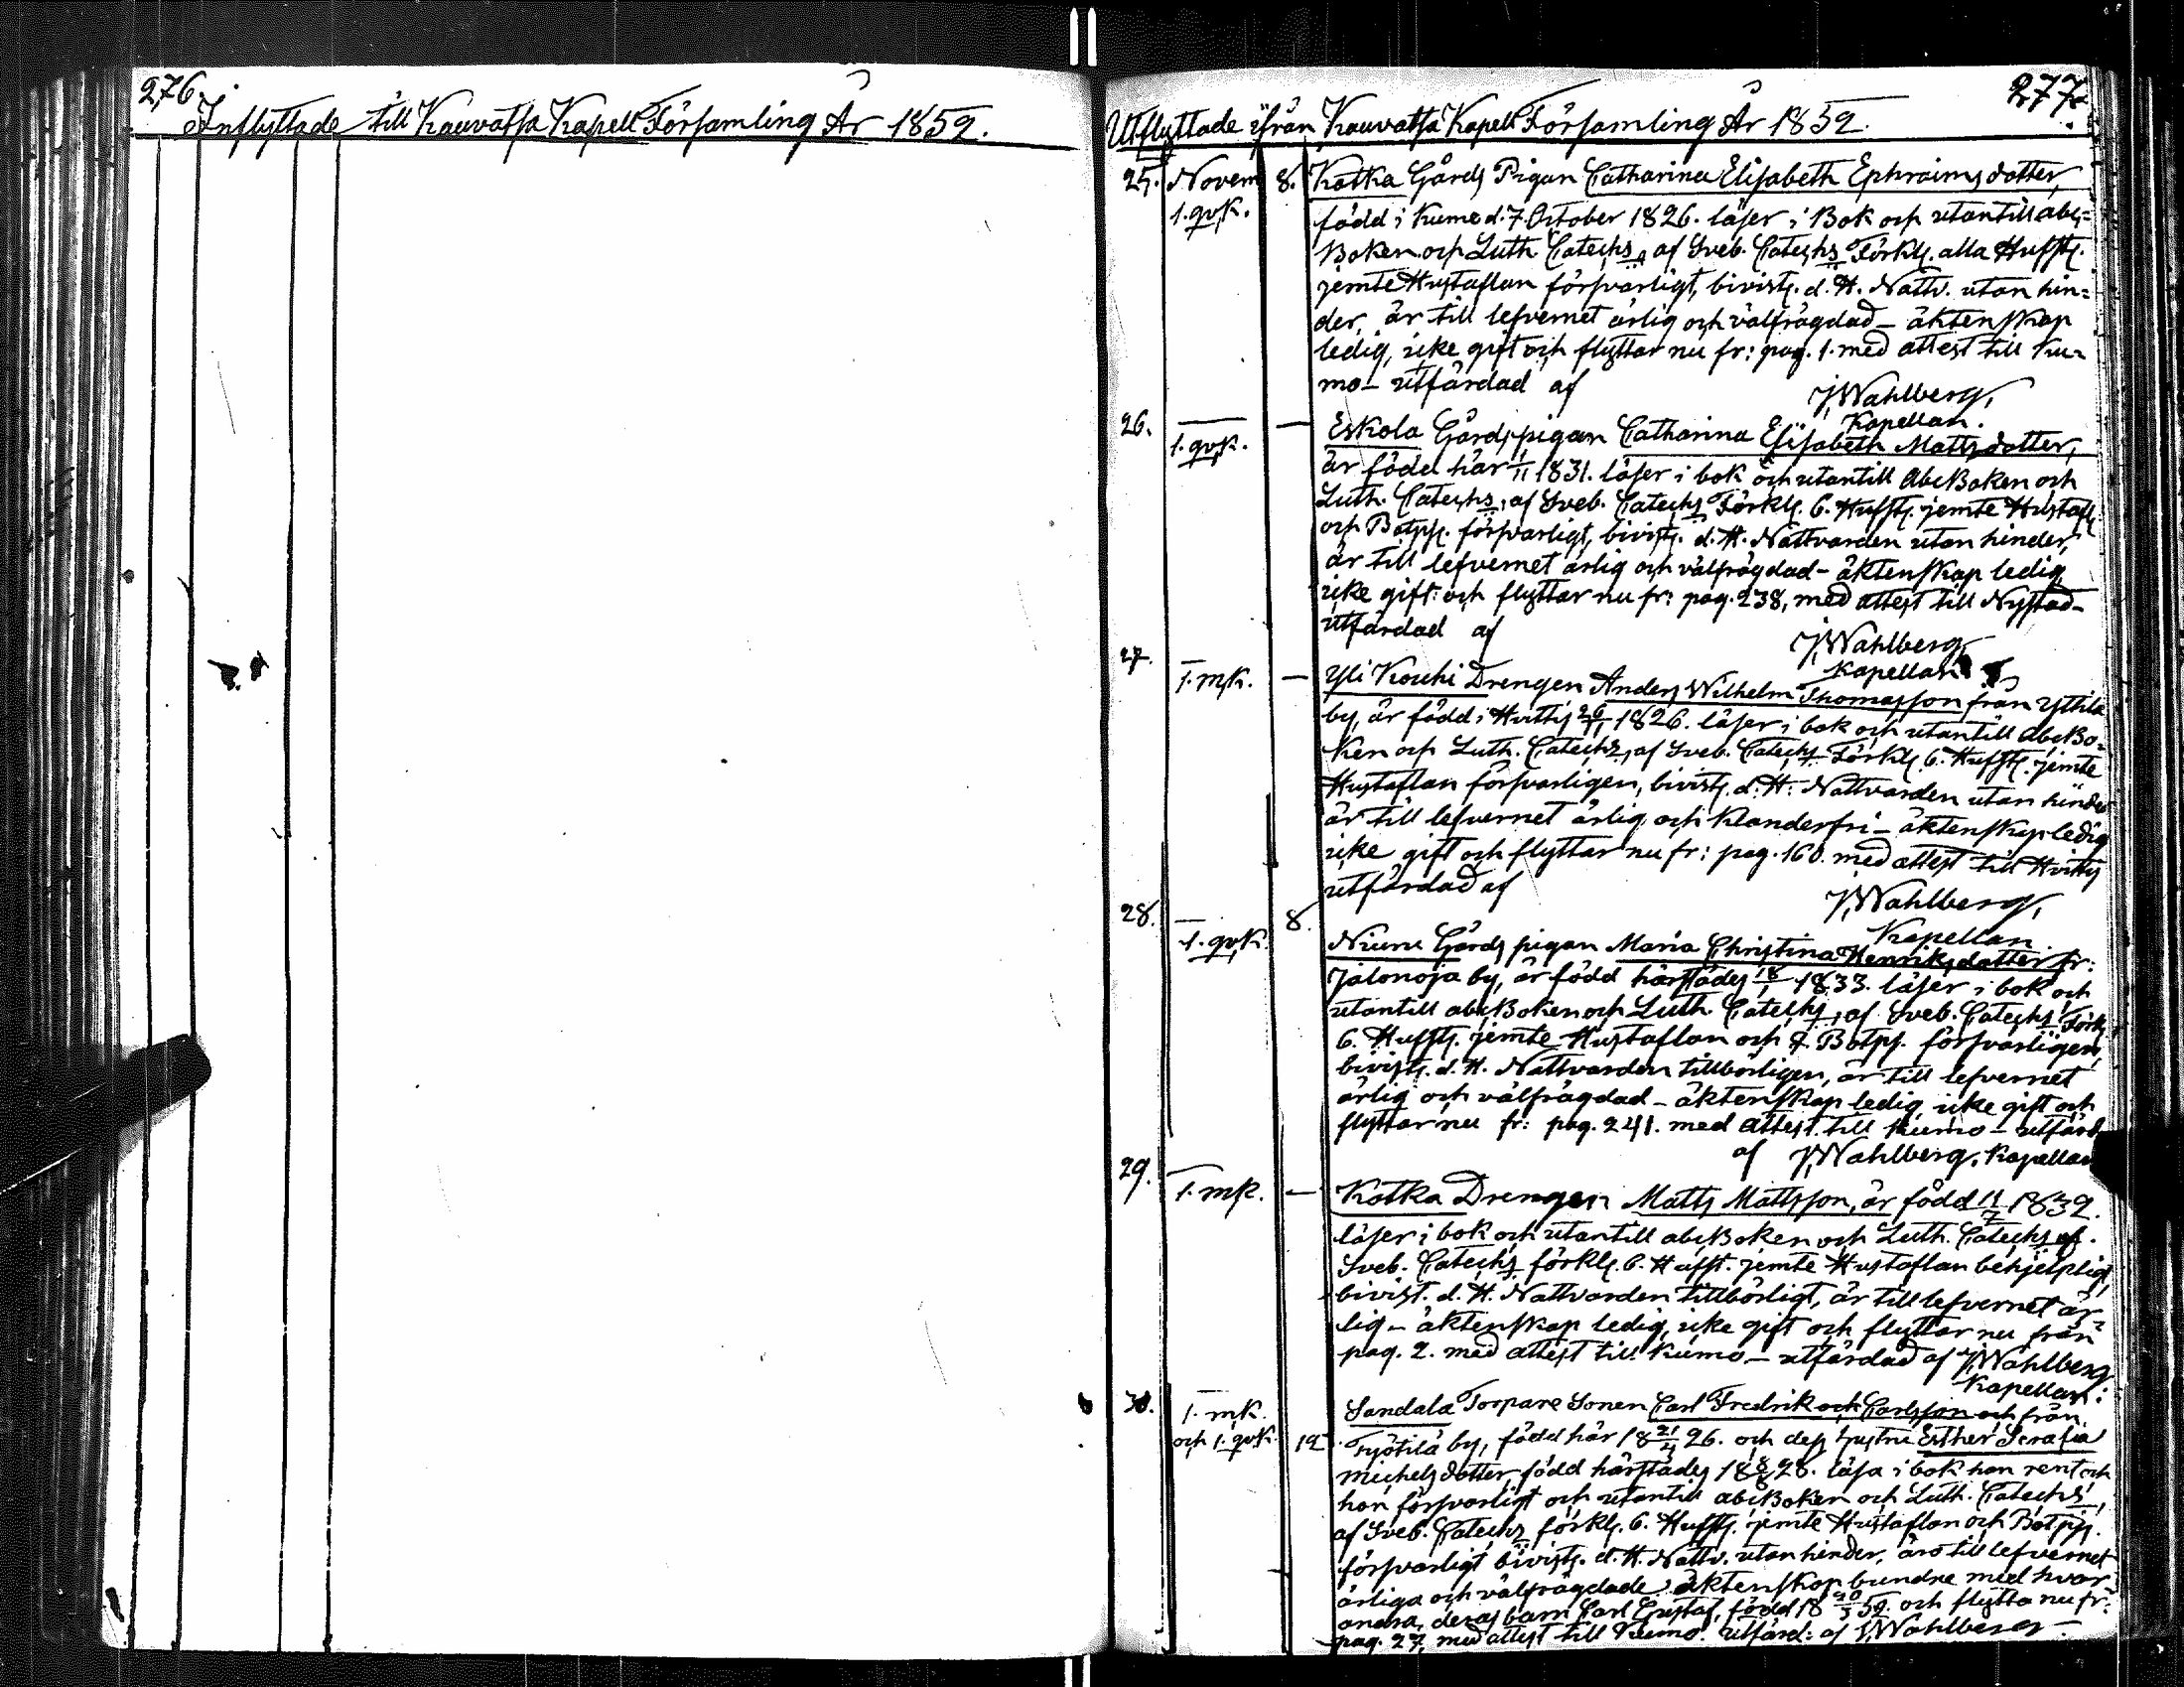 276.
Inflyttade till Kauvatsa Kapell Församling År 1859.
277.
Utflyttade ifrån Kauvatsa Kapell Församling År 1859.
25. Novem 8. Kotka Gårds Pigan Catharina Elisabeth Ephraimsdotter,
1. qvk. född i Kumo d. 7 October 1826. läser i Bok och utantill abc=
Boken och Luth. Catechs, af Sveb. Catechs Förkl. alla Hufst.
jemte Hustaflan försvarligt, bivist. d. H. Nattv. utan hin=
der, är till lefvernet ärlig och välfrägdad – äktenskap
ledig, icke gift och flyttar nu fr: pag. 1. med attest till Ku-
mo – utfärdad af
J, Wahlberg,
Kapellan.
26. — — Eskola Gårds pigan Catharina Elisabeth Mattsdotter,
1. qvk. är född här 1831. läser i bok och utantill AbcBoken och
Luth. Catechs, af Sveb. Catechs Förkl. 6. Hufst. jemte Hustafl
och Botps. försvarligt, bivist. d. H. Nattvarden utan hinder,
är till lefvernet ärlig och välfrägdad – äktenskap ledig,
icke gift: och flyttar nu fr: pag. 238, med attest till Nystad –
utfärdad af
J, Wahlberg,
Kapellan
27. 1. mk. — Yli Koschi Drengen Anders Wilhelm Thomasson från Yttilä
by, är född i Hvittis 1826. läser i bok och utantill AbcBo-
ken och Luth. Catechs, af Sveb. Catechs Förkl. 6. Hufst. jemte
Hustaflan försvarligen, bivist. d. H. Nattvarden utan hinder
är till lefvernet ärlig och klanderfri – äktenskap ledig
icke gift och flyttar nu fr: pag. 160. med attest till Hvittis
utfärdad af
J, Wahlberg,
Kapellan.
28. — 8.
1. qvk. Niemi Gårds pigan Maria Christina Henriksdotter fr:
Jalonoja by, är född härstädes 18/1 1833. läser i bok och
utantill abcBoken och Luth. Catechs, af Sveb. Catechs Förk
6. Hufst. jemte Hustaflan och 7. Botps. försvarligen,
bivist. d. H. Nattvarden tillbörligen, är till lefvernet
ärlig och välfrägdad – äktenskap ledig, icke gift och
flyttar nu fr: pag. 241. med attest till Kumo – utfärd
af J, Wahlberg, Kapellan
29. 1. mk. — Kotka Drengen Matts Mattsson, är född 11/2 1839.
läser i bok och utantill abcBoken och Luth. Catechs af.
Sveb. Catechs förkl. 6. Hufst. jemte Hustaflan behjelplig,
bivist. d. H. Nattvarden tillbörligt, är till lefvernet är-
lig – äktenskap ledig, icke gift och flyttar nu från
pag. 2. med attest till Kumo – utfärdad af J, Wahlberg
Kapellan:
30. 1. mk. Sandala Torpare Sonen Carl Fredrik och Carlsson och från
och 1. qvk. 12 by, född här 18 21/4 26. och dess hustru Esther Serafia
Michelsdotter, född härstädes 18 28. läsa i bok han rent och
hon försvarligt och utantill abcBoken och Luth. Catechs,
af Sveb. Catechs förkl. 6. Hufst. jemte Hustaflan och Botps.
försvarligt bivist. d. H. Nattv. utan hinder, äro till lefvernet
ärliga och välfrägdade, äktenskap bundne med hvar-
andra, deras barn Carl Gustaf, född 18 59. och flytta nu fr:
pag. 27, med attest till Kumo. Utfärd: af J, Wahlberg